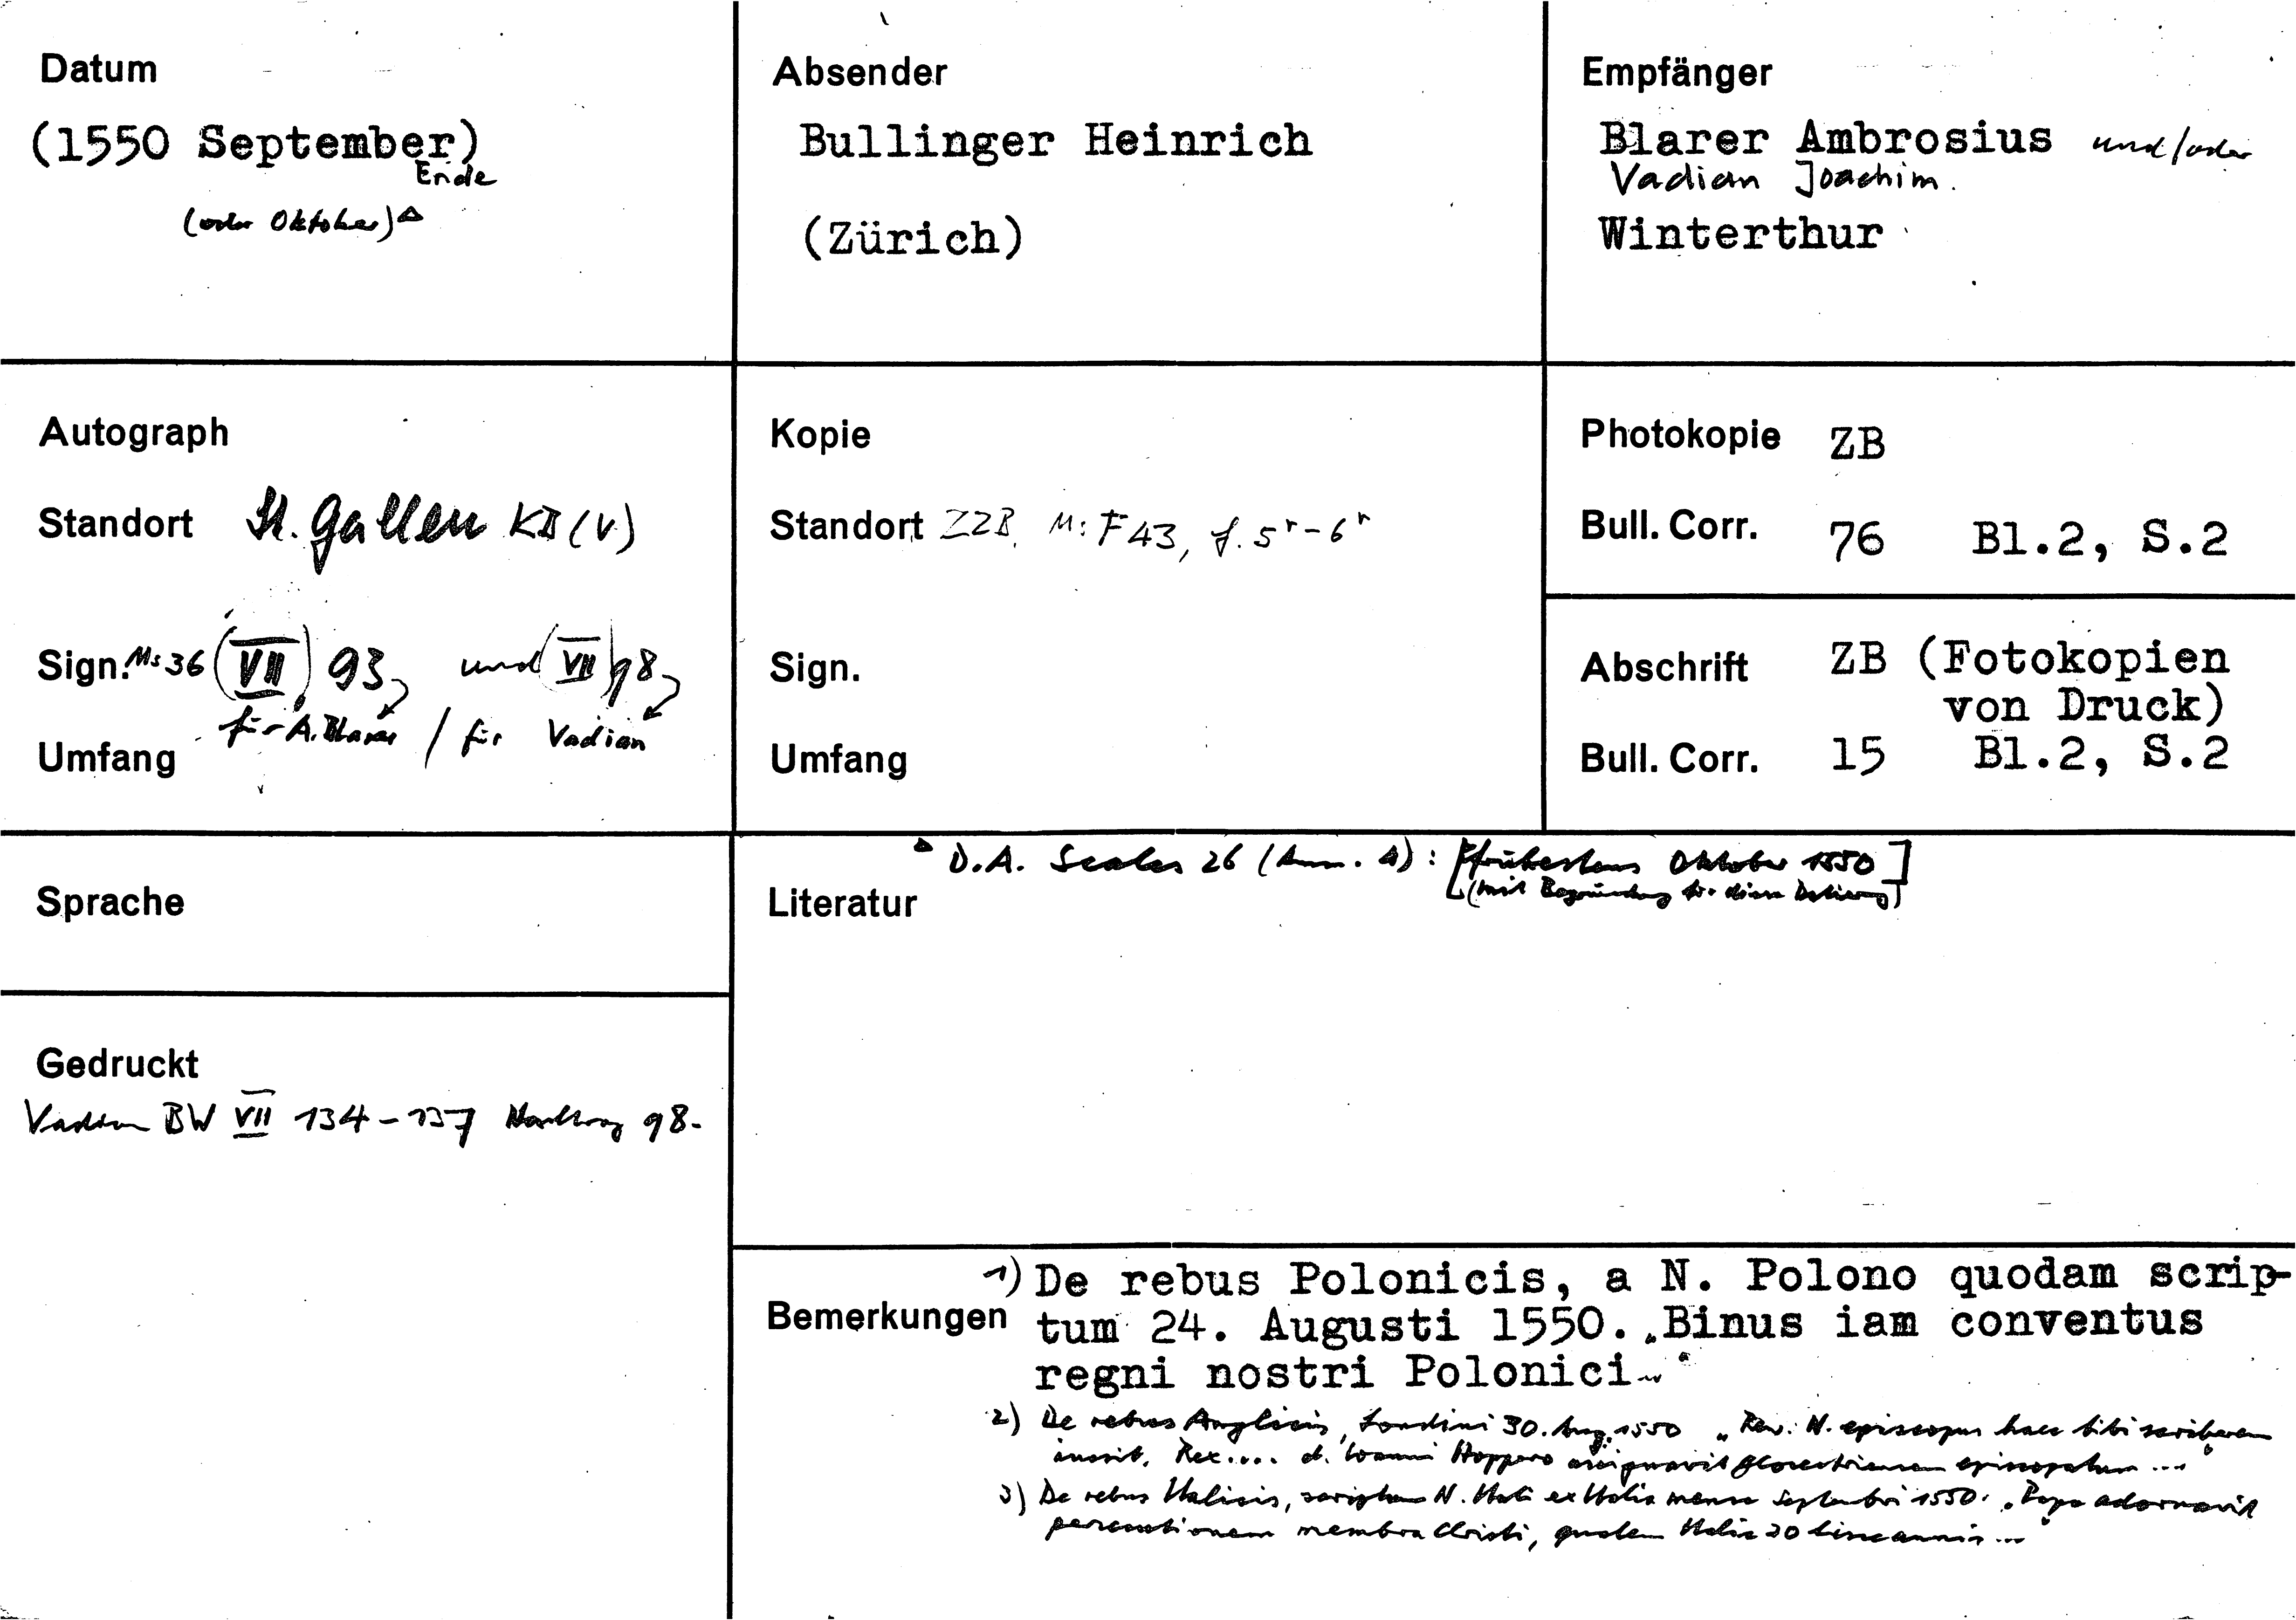 Datum
(1550 September)
Ende
(oder Oktober) Δ
Absender
Bullinger Heinrich
(Zürich)
Empfänger
Blarer Ambrosius und/oder
Vadian Joachim.
Winterthur
Autograph
Standort St. Gallen KB (V)
Sign. Ms 36 (VII) 93, und (VII) 98,
für A. Blarer / für Vadian
Umfang
Kopie
Standort ZZB. Ms F 43, f. 5r-6r
Sign.
Umfang
Photokopie ZB
Bull. Corr. 76 Bl.2, S.2
Abschrift ZB (Fotokopien
von Druck)
Bull. Corr. 15 Bl.2, S.2
Sprache
Gedruckt
Vadian BW VII 134-137 Nachtrag 98.
Δ D.A. Scales 26 (Anm. 4): [frühestens Oktober 1550]
(mit Begründung für diese Datierung)
Literatur
Bemerkungen
1) De rebus Polonicis, a N. Polono quodam scrip-
tum 24. Augusti 1550. „Binus iam conventus
regni nostri Polonici..."
2) De rebus Anglicis, Londini 30. Aug. 1550 „Rev. N. episcopus haec tibi scriberem
iussit. Rex.... d. Ioanni Hoppero episcopatum ..."
3) De rebus Italicis, scriptum N. Italo ex Italia mense Septembri 1550. „Papa adornavit
persecutionem membra Christi, qualem Italia 20 annis ..."